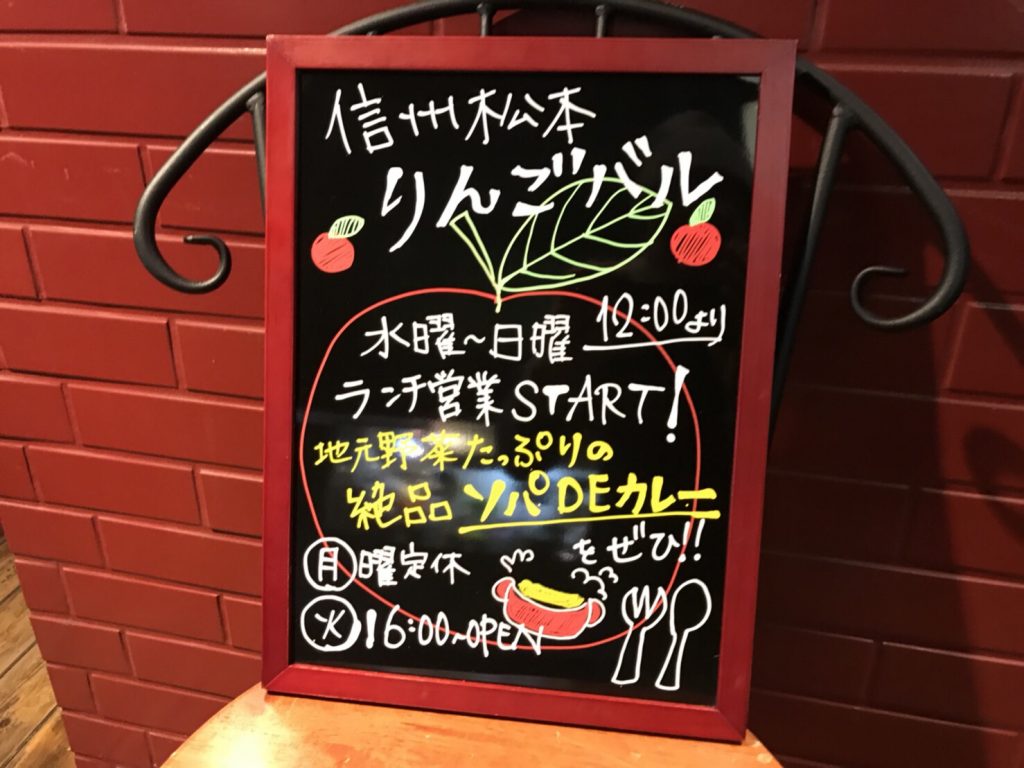 信州松本
りんごバル
水曜～日曜 12:00より
ランチ営業START!
地元野菜たっぷりの
絶品 ソパDEカレー
をぜひ!!
月曜定休
火16:00~OPEN